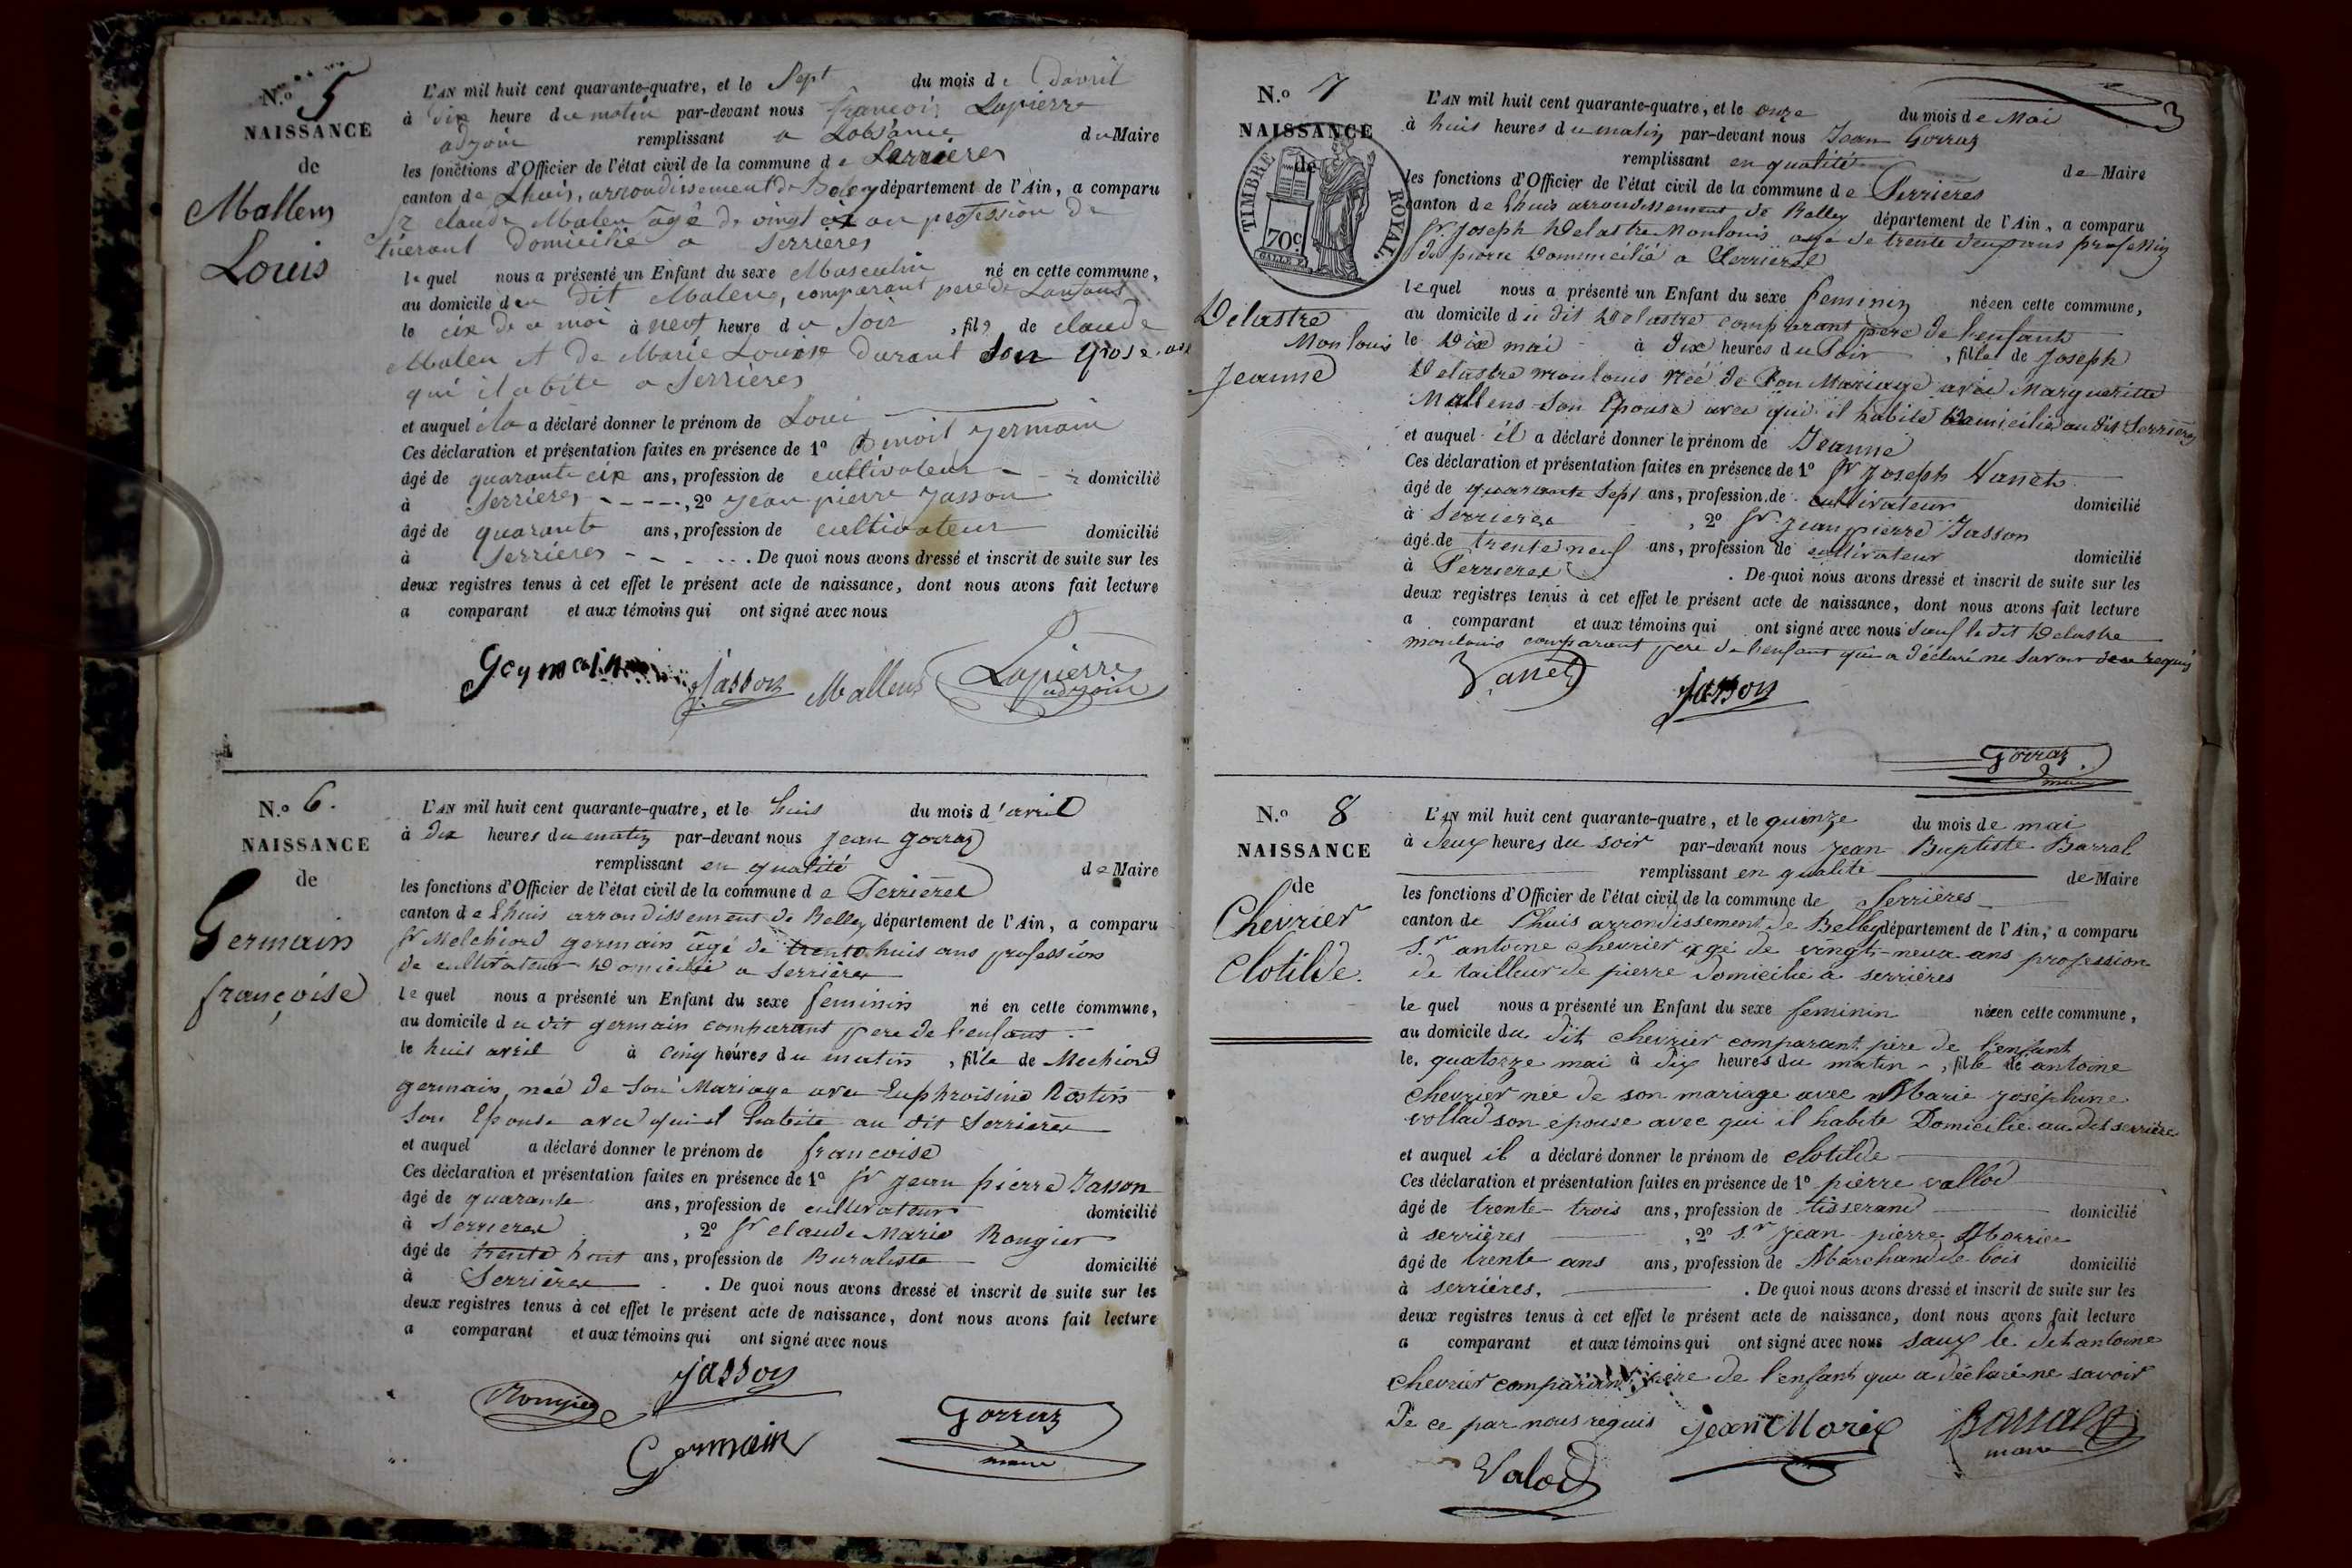 N.o 5
NAISSANCE
de
Mallens
Louis
L'AN mil huit cent quarante-quatre, et le Sept du mois de Davril
à dix heure du matin par-devant nous françois Lapierre
adjoin remplissant a Lobsance du Maire
les fonctions d'Officier de l'état civil de la commune de Serrieres
canton de Lhuis, arrondissement de Beley département de l'Ain, a comparu
Sr claude Malen âgé de vingt cix an profession de
tixerant Domicilié a Serrières
lequel nous a présenté un Enfant du sexe Masculin né en cette commune,
au domicile du dit Malens, comparant pere de Lanfant
le cix de ce moi à neuf heure du Soir, fils de claude
Malen et de Marie Louise durant son épose avec
qui il abite a Serrières
et auquel a déclaré donner le prénom de Loui
Ces déclaration et présentation faites en présence de 1º Benoit germain
âgé de quarante cix ans, profession de cultivateur domicilié
à Serrieres, 2º Jean pierre Jasson
âgé de quarante ans, profession de cultivateur domicilié
à Serrieres. De quoi nous avons dressé et inscrit de suite sur les
deux registres tenus à cet effet le présent acte de naissance, dont nous avons fait lecture
a comparant et aux témoins qui ont signé avec nous
Germain Jasson Mallens Lapierre
adjoin
N.o 6.
NAISSANCE
de
Germain
françoise
L'AN mil huit cent quarante-quatre, et le huis du mois d'avril
à dix heures du matin par-devant nous Jean Gorraz
remplissant en qualité de Maire
les fonctions d'Officier de l'état civil de la commune de Serrieres
canton de Lhuis arrondissement de Belley département de l'Ain, a comparu
Sr Melchiord germain âgé de trente huis ans profession
de cultivateur Domicilié a Serrières
lequel nous a présenté un Enfant du sexe feminin né en cette commune,
au domicile du dit germain comparant pere de l'enfant
le huit avril à cinq heures du matin, fille de Mechiord
germain, née de son Mariage avec Euphroisine Rostin
Son Epouse avec qui il habite au dit Serrières
et auquel a déclaré donner le prénom de francoise
Ces déclaration et présentation faites en présence de 1º Sr Jean pierre Jasson
âgé de quarante ans, profession de cultivateur domicilié
à Serrieres, 2º Sr claude Marie Rongier
âgé de trente huit ans, profession de Buraliste domicilié
à Serrières. De quoi nous avons dressé et inscrit de suite sur les
deux registres tenus à cet effet le présent acte de naissance, dont nous avons fait lecture
a comparant et aux témoins qui ont signé avec nous
Jasson
Rongier
Germain
Gorraz
maire
N.o 7
NAISSANCE
de
TIMBRE ROYAL
70c
Delastre
Monlouis
Jeanne
L'AN mil huit cent quarante-quatre, et le onze du mois de Mai
à huis heures du matin par-devant nous Jean Gorraz
remplissant en qualité de Maire
les fonctions d'Officier de l'état civil de la commune de Serrieres
canton de Lhuis arrondissement de Belley département de l'Ain, a comparu
Sr. Joseph Delastre Monlouis âgé de trente deux ans profession
de pierre Dommicilié a Serrieres
lequel nous a présenté un Enfant du sexe feminin née en cette commune,
au domicile du dit Delastre comparant pere de l'enfant
le Dix mai à dix heures du Soir, fille de Joseph
Delastre monlouis née de Son Mariage avec Margueritte
Mallens Son Epouse avec qui il habite Damicilié au dit Serrieres
et auquel il a déclaré donner le prénom de Jeanne
Ces déclaration et présentation faites en présence de 1º Sr Joseph Vanet
âgé de quarante Sept ans, profession de cultivateur domicilié
à Serrieres, 2º Sr. jean pierre Jasson
âgé de trente neuf ans, profession de cultivateur domicilié
à Serrieres. De quoi nous avons dressé et inscrit de suite sur les
deux registres tenus à cet effet le présent acte de naissance, dont nous avons fait lecture
a comparant et aux témoins qui ont signé avec nous Sauf le dit Delastre
monlouis comparant pere de l'enfant qui a déclaré ne savoir de ce requis
Vanet
Jasson
Gorraz
maire
N.o 8
NAISSANCE
de
Chevrier
Clotilde.
L'AN mil huit cent quarante-quatre, et le quinze du mois de mai
à deux heures du soir par-devant nous Jean Baptiste Barral
remplissant en qualité de Maire
les fonctions d'Officier de l'état civil de la commune de Serrières
canton de Lhuis arrondissement de Belley département de l'Ain, a comparu
S.r antoine chevrier agé de vingt-neux ans profession
de tailleur de pierre domicilié à serrières
lequel nous a présenté un Enfant du sexe feminin née en cette commune,
au domicile du dit chevrier comparant père de l'enfant
le quatorze mai à dix heures du matin, fille de antoine
chevrier née de son mariage avec Marie joséphine
vollad son épouse avec qui il habite Domicilié au dit serrière
et auquel il a déclaré donner le prénom de clotilde
Ces déclaration et présentation faites en présence de 1º pierre vallod
âgé de trente-trois ans, profession de tisserand domicilié
à serrières, 2º S.r Jean-pierre Morrier
âgé de trente ans ans, profession de Marchand de bois domicilié
à serrières. De quoi nous avons dressé et inscrit de suite sur les
deux registres tenus à cet effet le présent acte de naissance, dont nous avons fait lecture
a comparant et aux témoins qui ont signé avec nous sauf le dit antoine
chevrier comparant père de l'enfant qui a déclaré ne savoir
De ce par nous requis Jean Morier Barral
maire
Valod